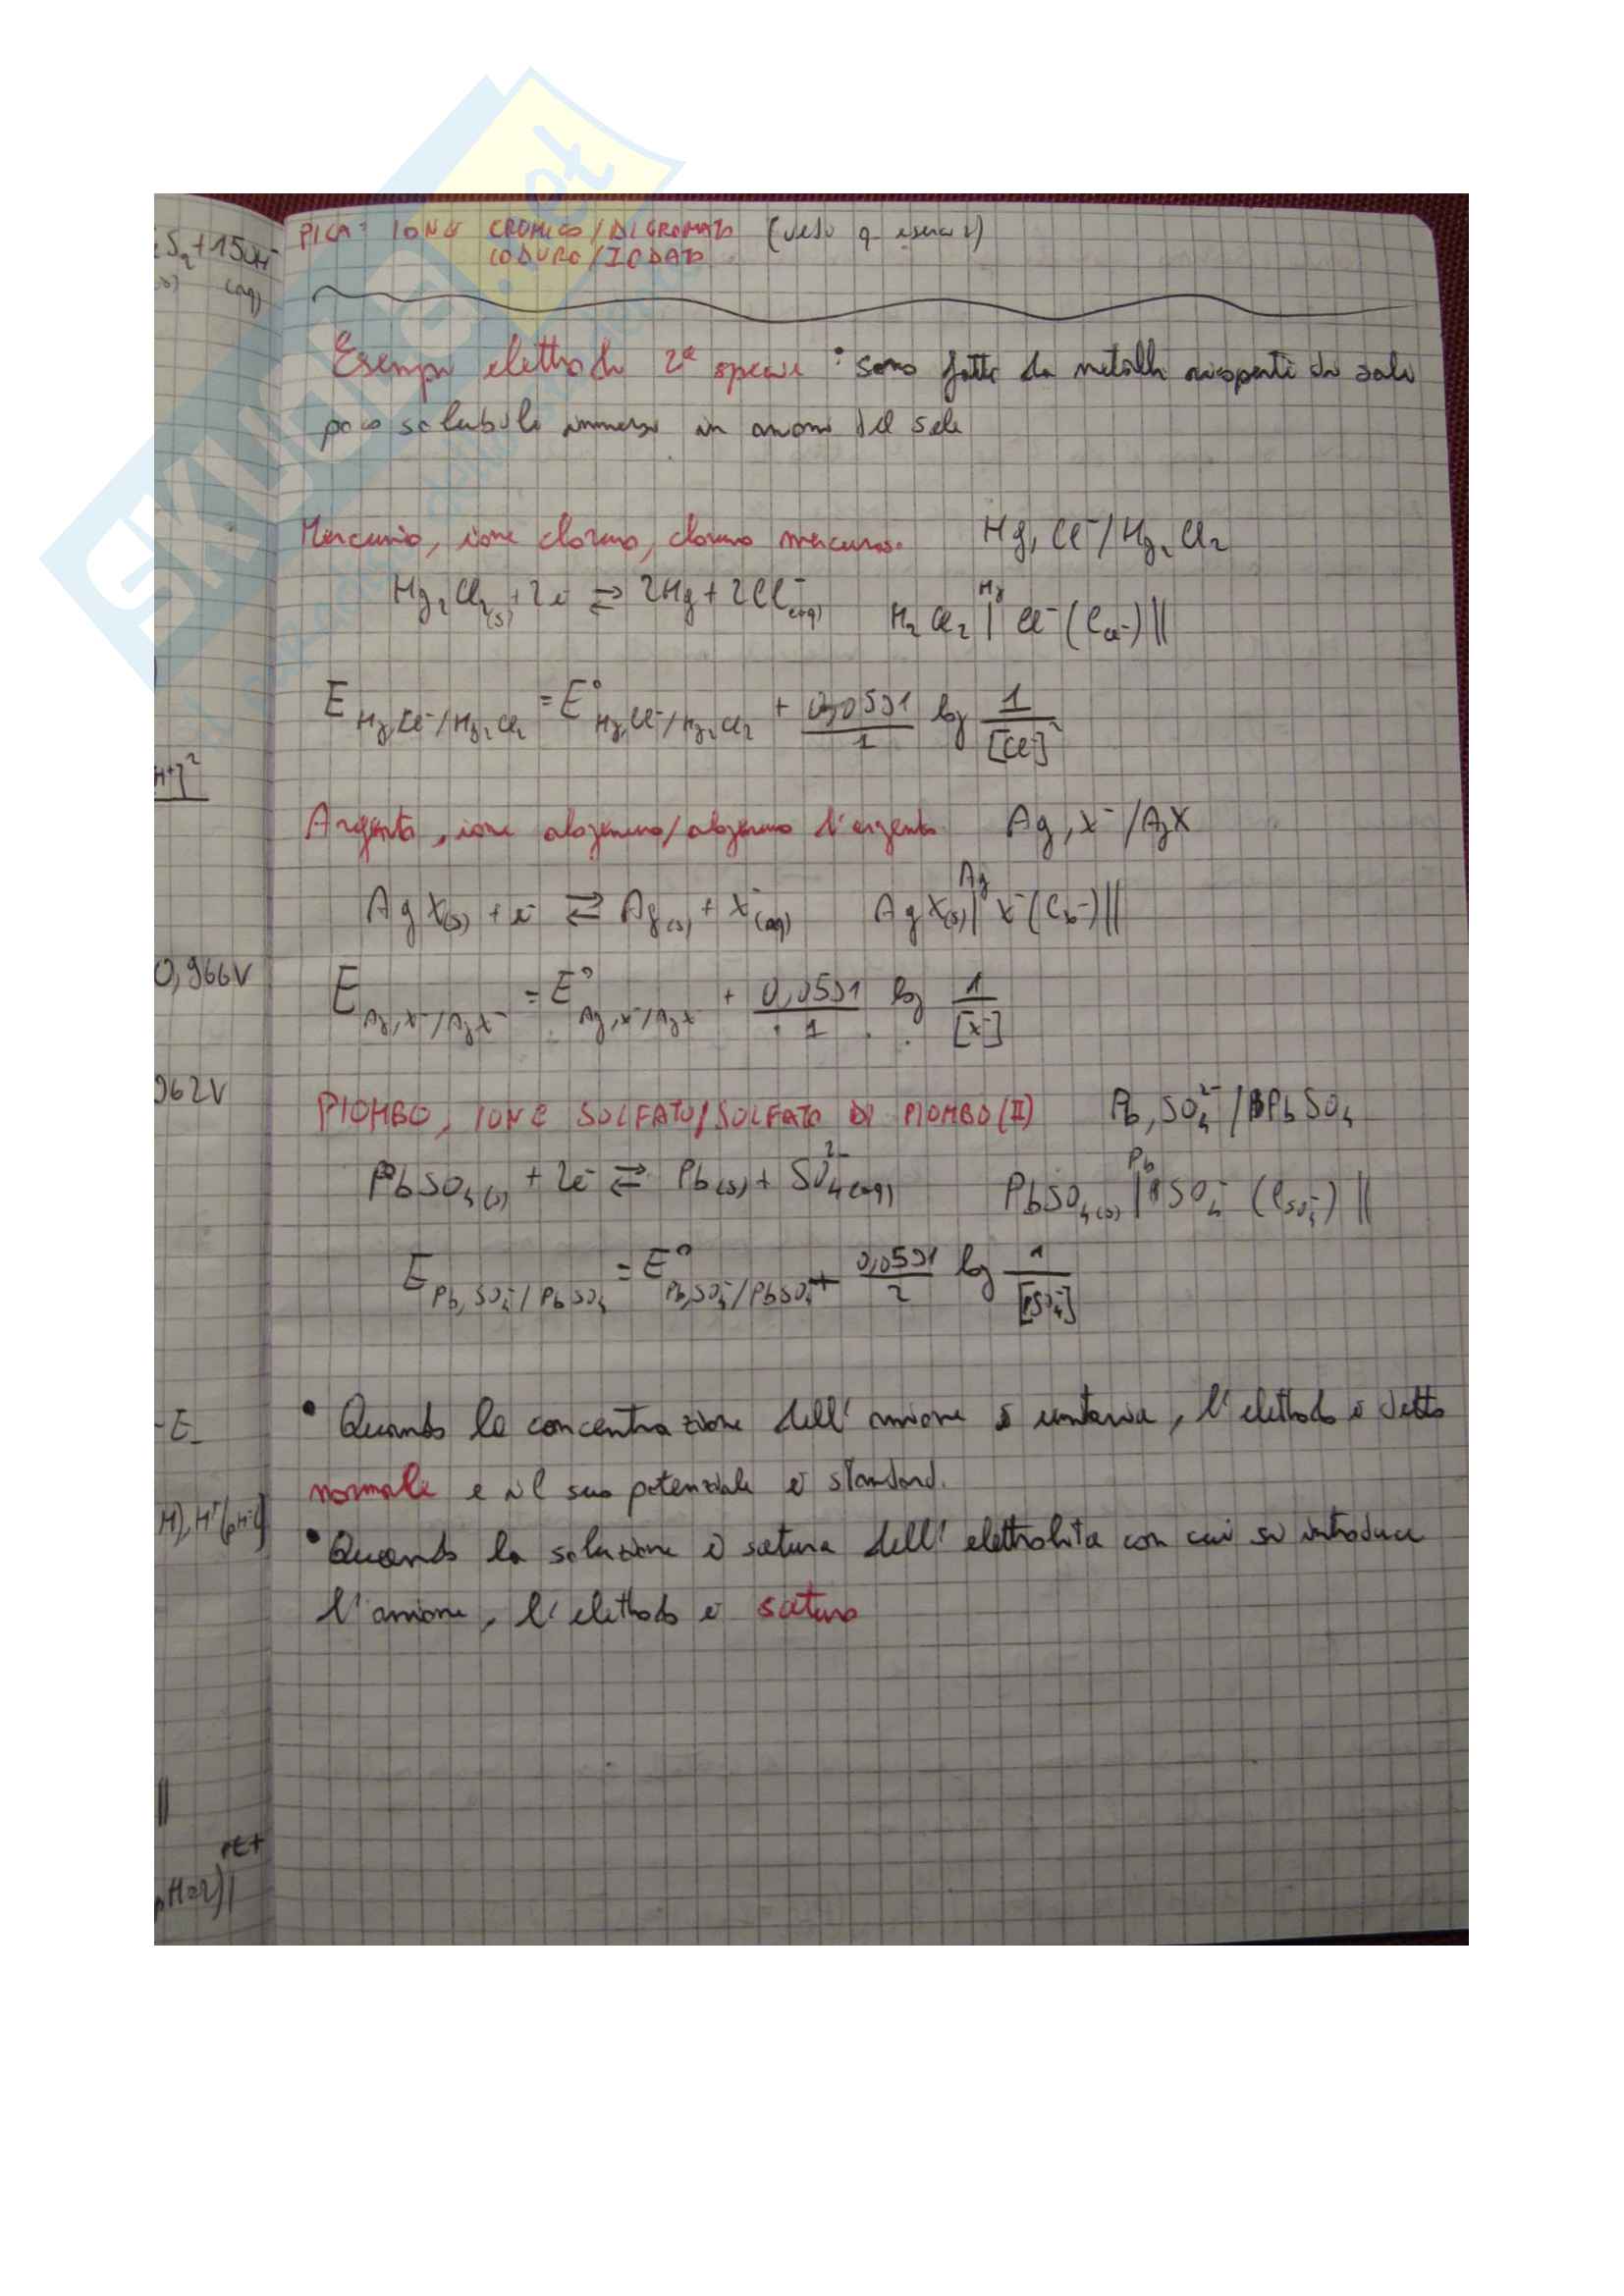 PILA: IONE CROMICO/DICROMATO (vedi q. esercizi)
IODURO/IODATO
Esempi elettrodi 2ª specie: sono fatti da metalli ricoperti da sali
poco solubili immersi in anioni del sale
Mercurio, ione cloruro, cloruro mercuroso. Hg, Cl⁻/Hg₂Cl₂
Hg₂Cl₂(s) + 2e⁻ ⇄ 2Hg + 2Cl⁻(aq) H₂Cl₂ |Hg Cl⁻ (C_Cl⁻) ||
E Hg,Cl⁻/Hg₂Cl₂ = E° Hg,Cl⁻/Hg₂Cl₂ + 0,0591/2 log 1/[Cl⁻]²
Argento, ione alogenuro/alogenuro d'argento Ag, X⁻/AgX
AgX(s) + e⁻ ⇄ Ag(s) + X⁻(aq) AgX(s) |Ag X⁻ (C_X⁻) ||
E Ag,X⁻/AgX⁻ = E° Ag,X⁻/AgX + 0,0591/1 log 1/[X⁻]
PIOMBO, IONE SOLFATO/SOLFATO DI PIOMBO(II) Pb, SO₄²⁻/PbSO₄
PbSO₄(s) + 2e⁻ ⇄ Pb(s) + SO₄²⁻(aq) PbSO₄(s) |Pb SO₄⁻ (C_SO₄⁻) ||
E Pb,SO₄⁻/PbSO₄ = E° Pb,SO₄⁻/PbSO₄ + 0,0591/2 log 1/[SO₄⁻]
• Quando la concentrazione dell'anione è unitaria, l'elettrodo è detto
normale e il suo potenziale è standard.
• Quando la soluzione è satura dell'elettrolita con cui si introduce
l'anione, l'elettrodo è saturo
S₂ + 15OH⁻
(aq)
H⁺]²
0,966V
962V
-E_
H), H⁺(pH=
||
Pt+
pH=2)|
SKUOLA.net